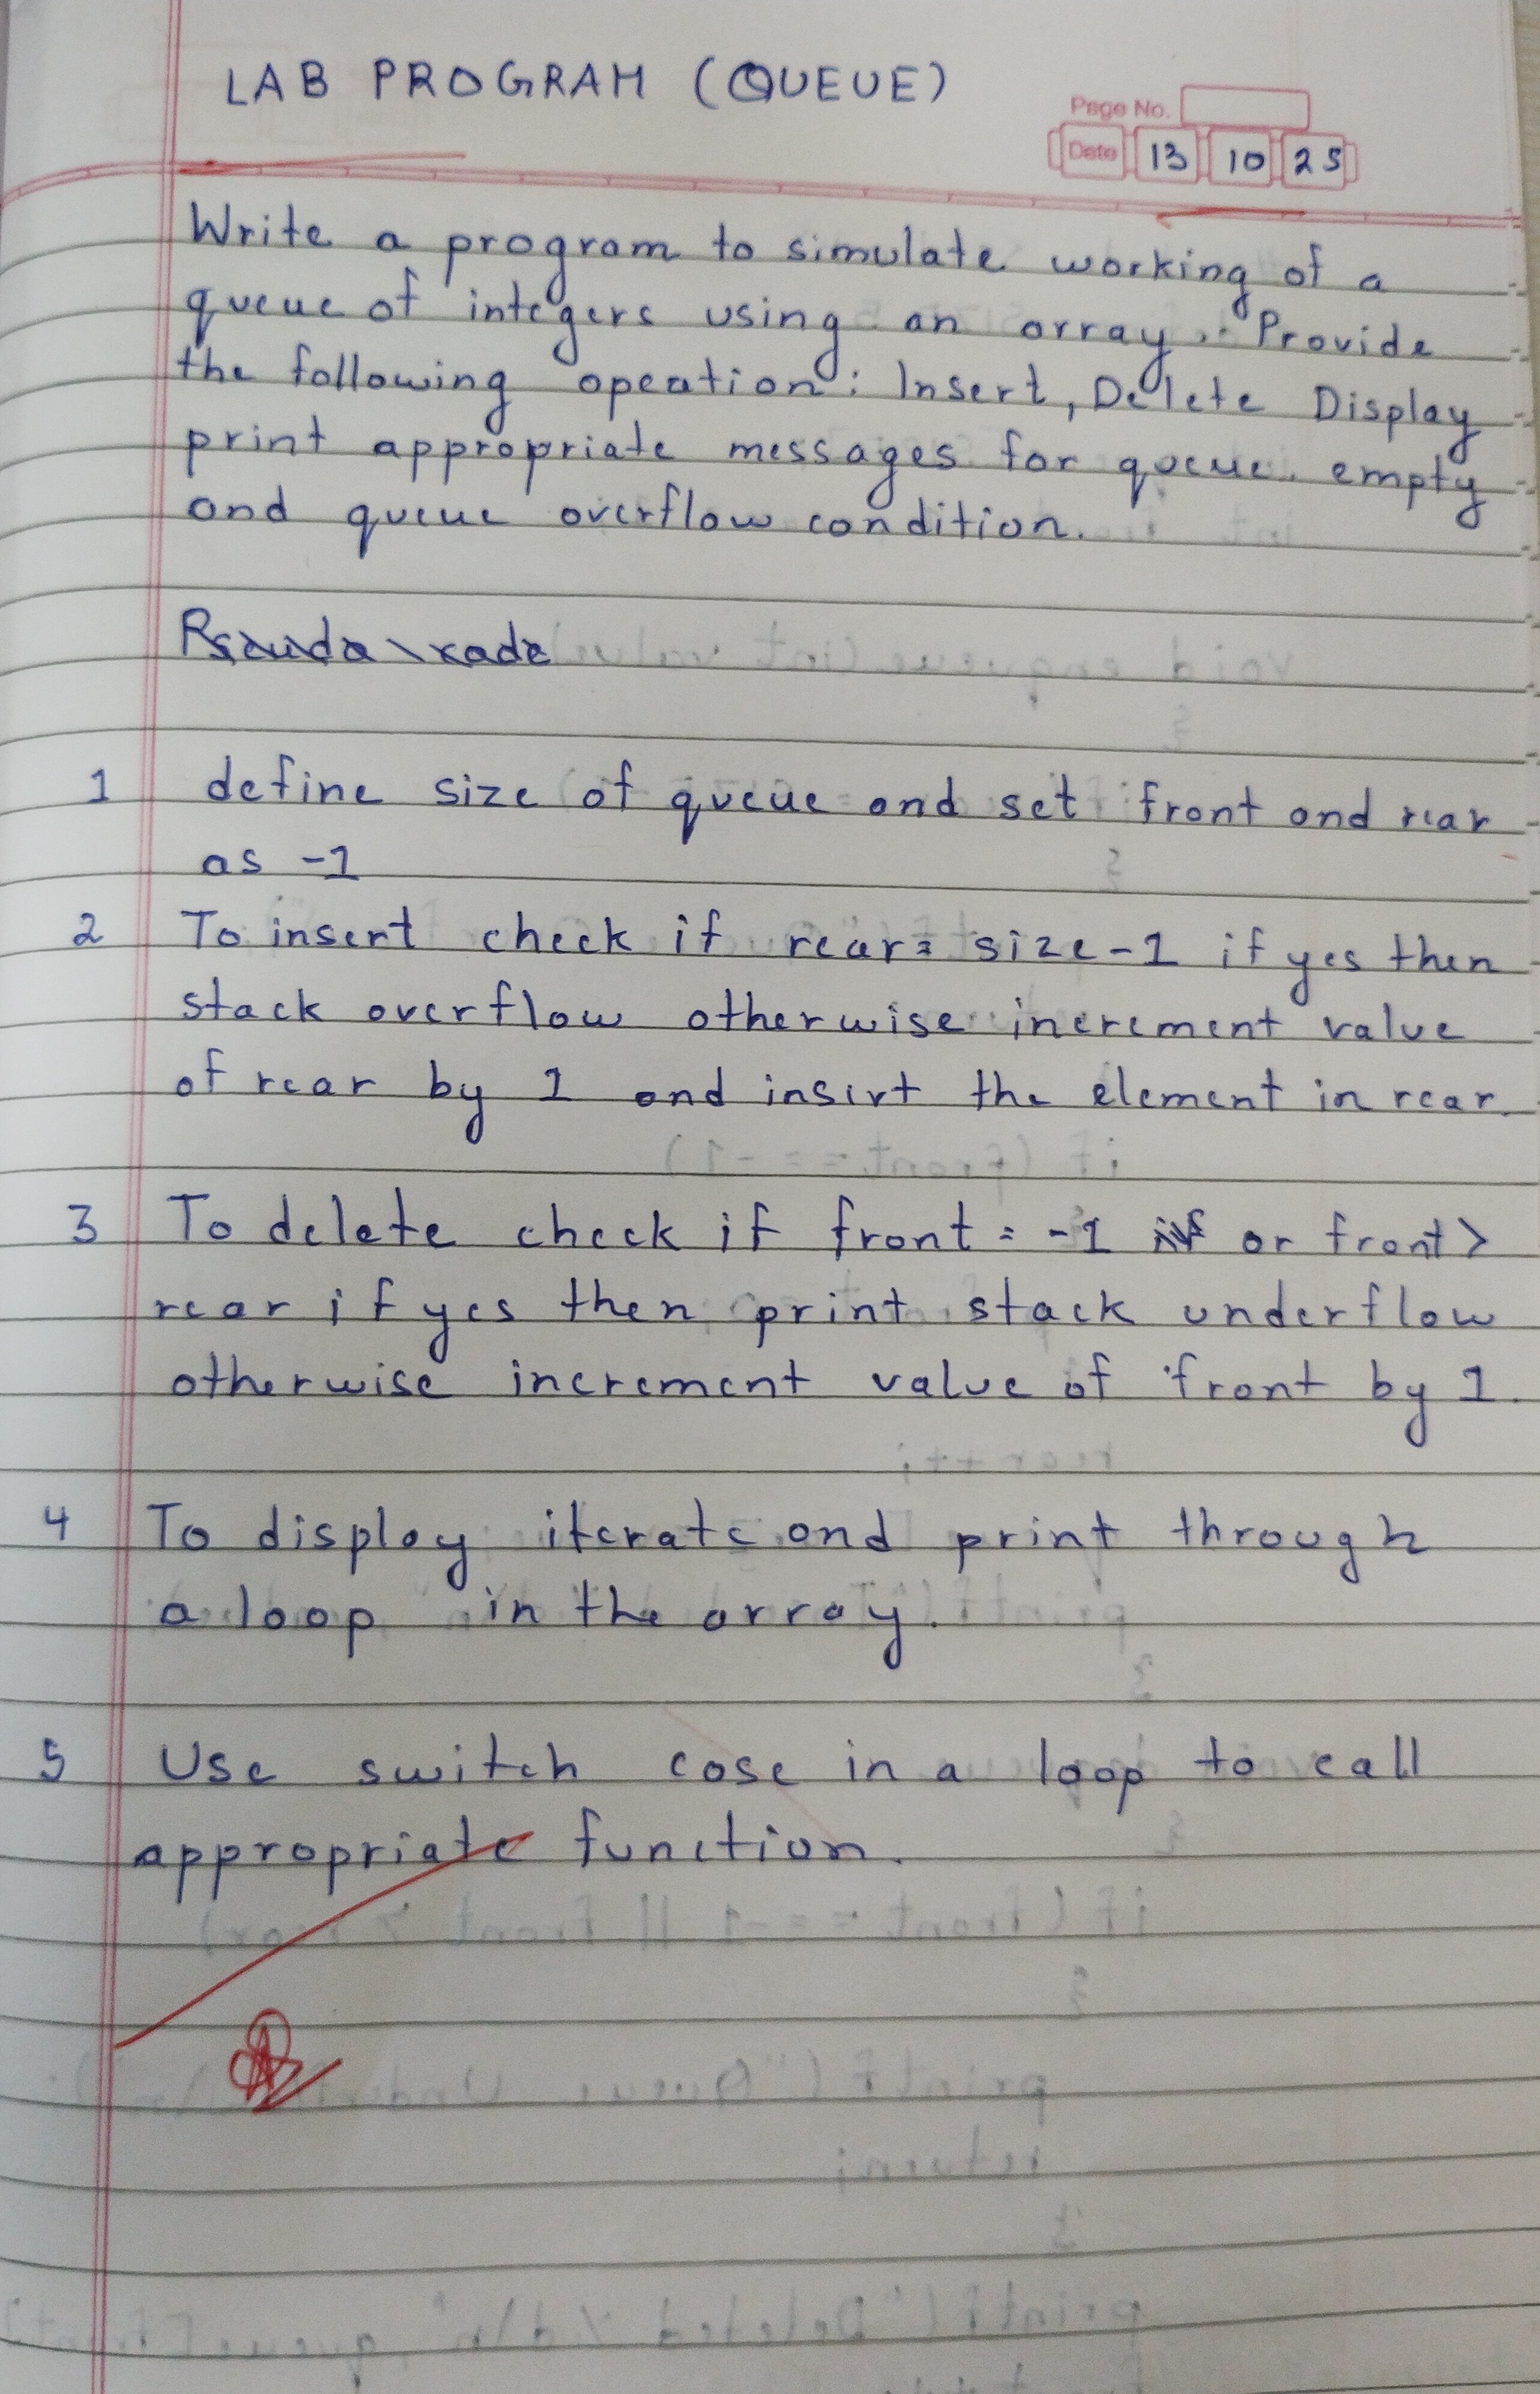 LAB PROGRAM (QUEUE)
Page No.
Date 13 10 25
Write a program to simulate working of a
queue of integers using an array. Provide
the following opeation: Insert, Delete Display
print appropriate messages for queue empty
and queue overflow condition.
1 define size of queue and set front and rear
as -1
2 To insert check if rear = size-1 if yes then
stack overflow otherwise increment value
of rear by 1 and insert the element in rear.
3 To delete check if front = -1 or front >
rear if yes then print stack underflow
otherwise increment value of front by 1.
4 To display iterate and print through
a loop in the array.
5 Use switch case in a loop to call
appropriate function.